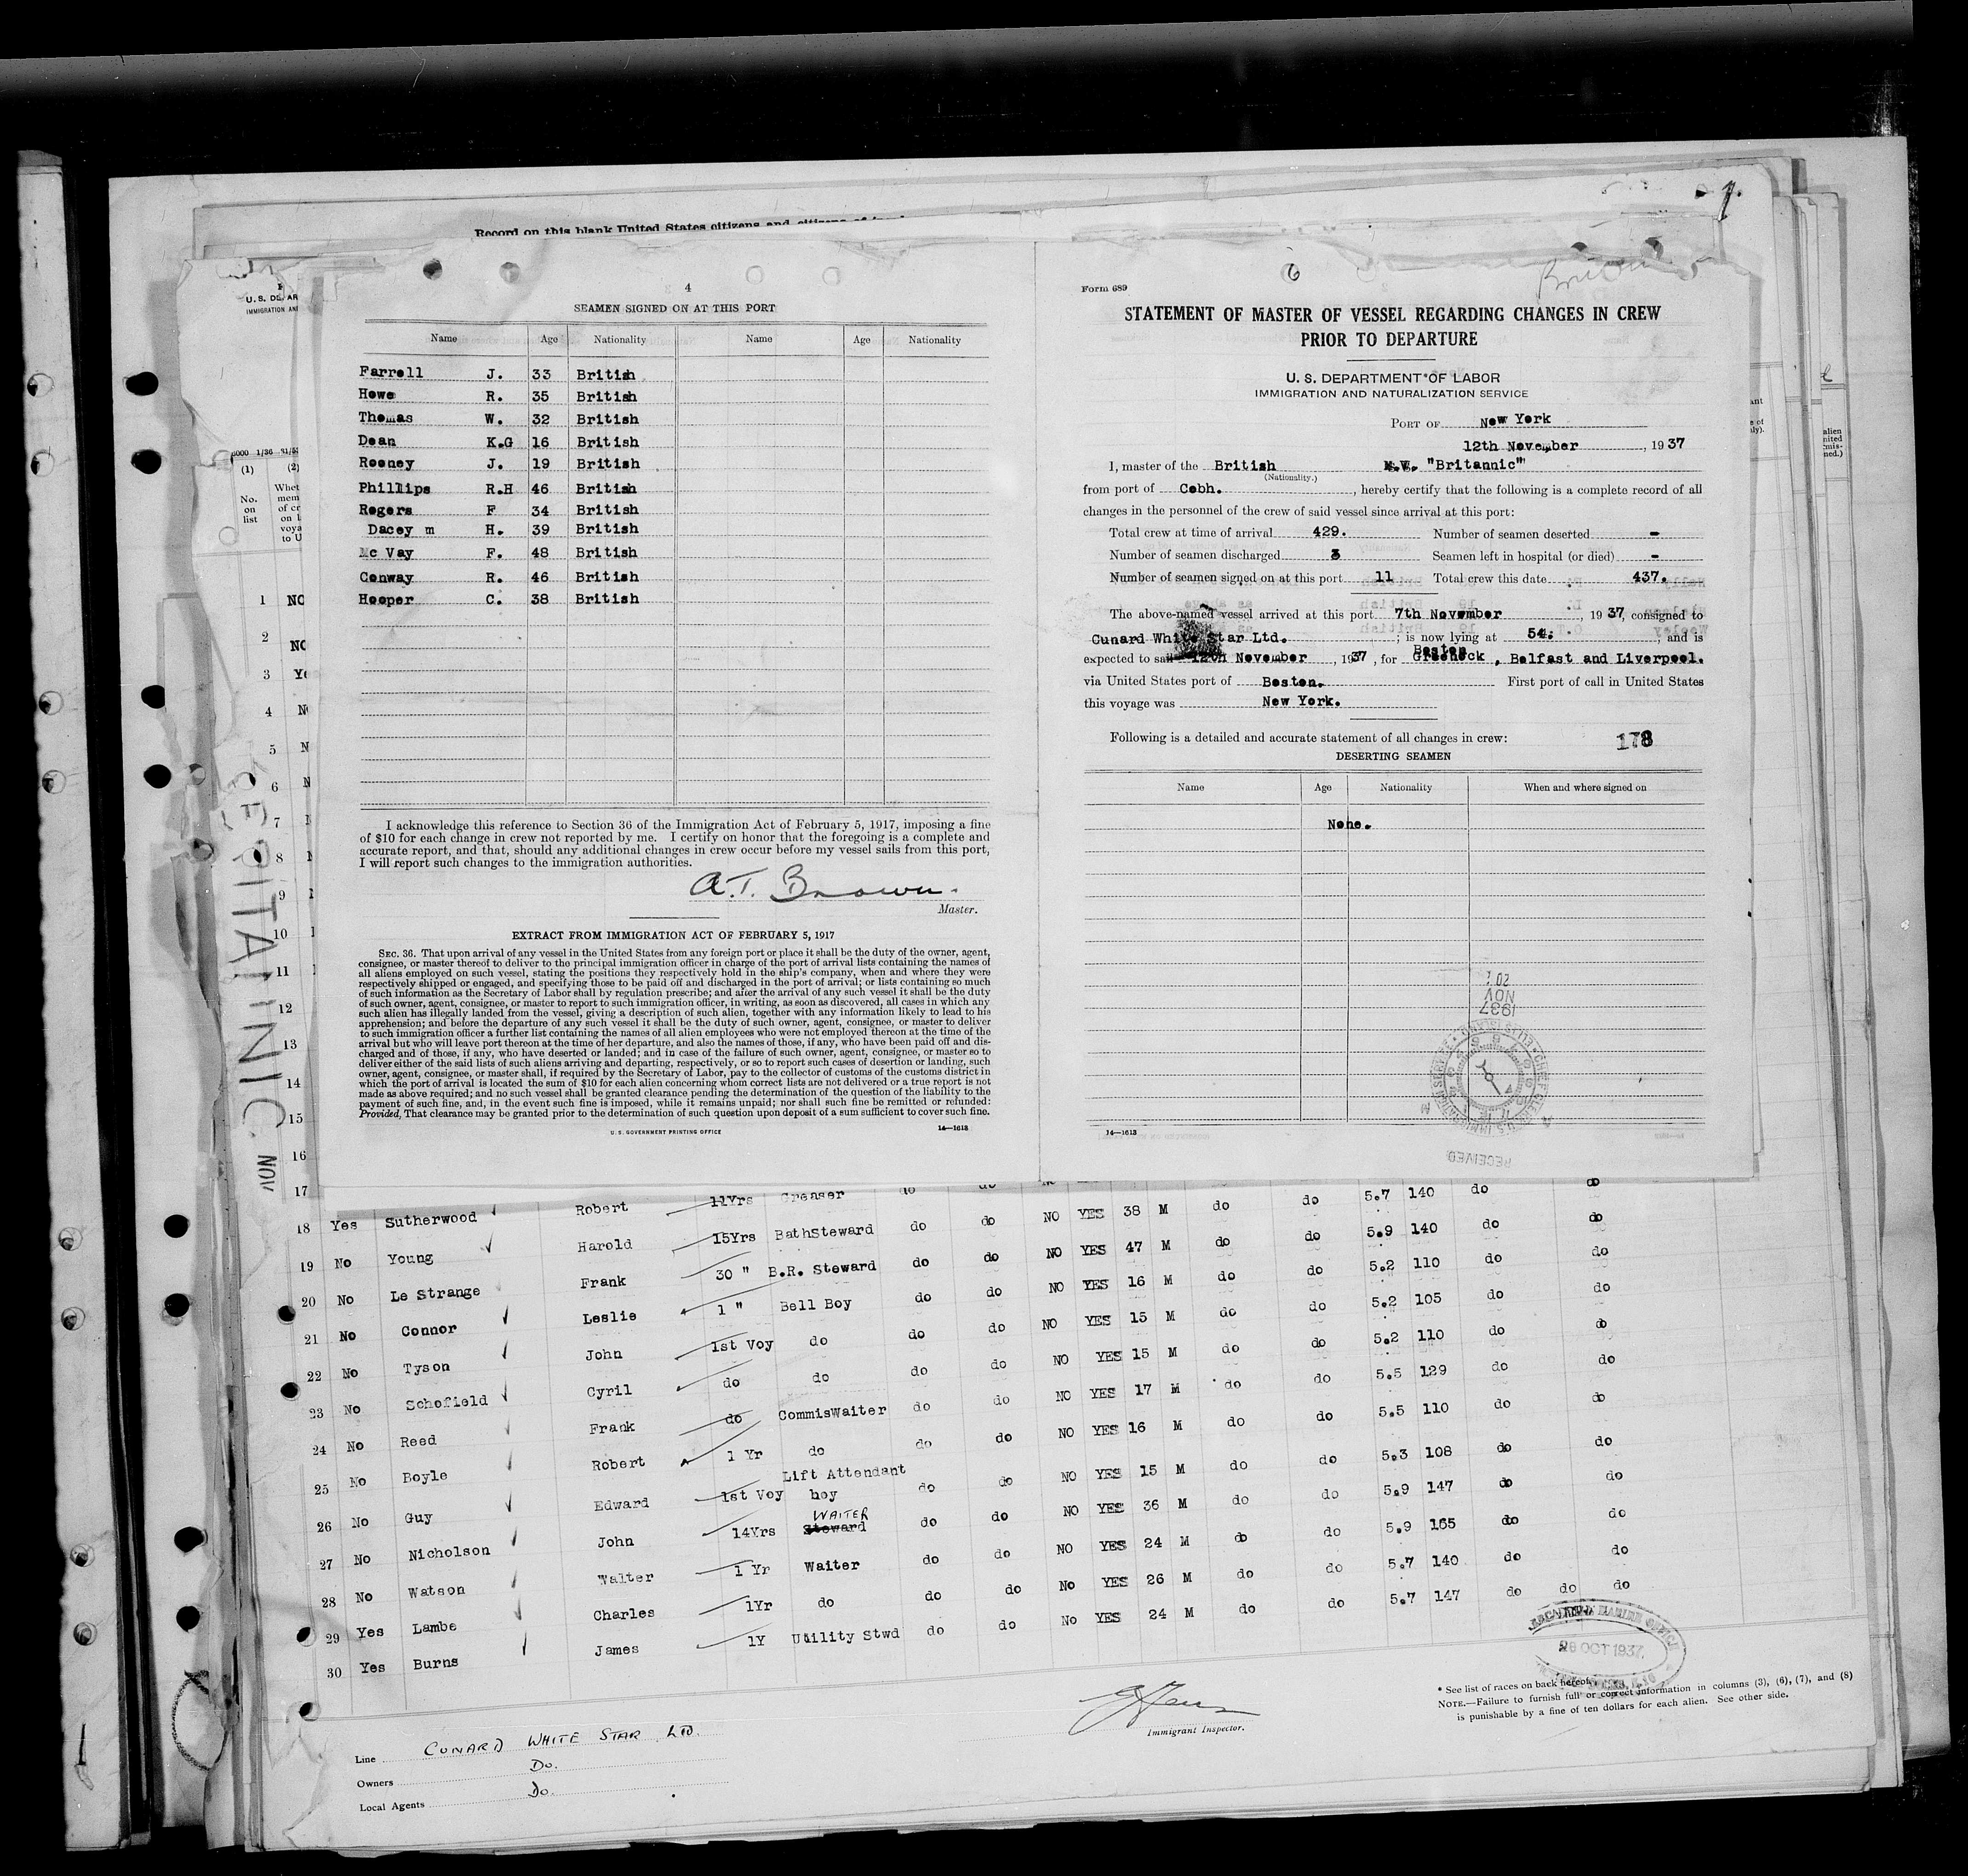 Record on this blank United States citizens and citizens of
4
SEAMEN SIGNED ON AT THIS PORT
Name Age Nationality Name Age Nationality
Farrell J. 33 British
Howe R. 35 British
Thomas W. 32 British
Dean K.G 16 British
Rooney J. 19 British
Phillips R.H 46 British
Rogers F 34 British
Dacey m H. 39 British
Mc Vay F. 48 British
Conway R. 46 British
Hooper C. 38 British
I acknowledge this reference to Section 36 of the Immigration Act of February 5, 1917, imposing a fine
of $10 for each change in crew not reported by me. I certify on honor that the foregoing is a complete and
accurate report, and that, should any additional changes in crew occur before my vessel sails from this port,
I will report such changes to the immigration authorities.
A.T. Brown.
Master.
EXTRACT FROM IMMIGRATION ACT OF FEBRUARY 5, 1917
SEC. 36. That upon arrival of any vessel in the United States from any foreign port or place it shall be the duty of the owner, agent,
consignee, or master thereof to deliver to the principal immigration officer in charge of the port of arrival lists containing the names of
all aliens employed on such vessel, stating the positions they respectively hold in the ship's company, when and where they were
respectively shipped or engaged, and specifying those to be paid off and discharged in the port of arrival; or lists containing so much
of such information as the Secretary of Labor shall by regulation prescribe; and after the arrival of any such vessel it shall be the duty
of such owner, agent, consignee, or master to report to such immigration officer, in writing, as soon as discovered, all cases in which any
such alien has illegally landed from the vessel, giving a description of such alien, together with any information likely to lead to his
apprehension; and before the departure of any such vessel it shall be the duty of such owner, agent, consignee, or master to deliver
to such immigration officer a further list containing the names of all alien employees who were not employed thereon at the time of the
arrival but who will leave port thereon at the time of her departure, and also the names of those, if any, who have been paid off and dis-
charged and of those, if any, who have deserted or landed; and in case of the failure of such owner, agent, consignee, or master so to
deliver either of the said lists of such aliens arriving and departing, respectively, or so to report such cases of desertion or landing, such
owner, agent, consignee, or master shall, if required by the Secretary of Labor, pay to the collector of customs of the customs district in
which the port of arrival is located the sum of $10 for each alien concerning whom correct lists are not delivered or a true report is not
made as above required; and no such vessel shall be granted clearance pending the determination of the question of the liability to the
payment of such fine, and, in the event such fine is imposed, while it remains unpaid; nor shall such fine be remitted or refunded:
Provided, That clearance may be granted prior to the determination of such question upon deposit of a sum sufficient to cover such fine.
U. S. GOVERNMENT PRINTING OFFICE 14—1613
6
Form 689
STATEMENT OF MASTER OF VESSEL REGARDING CHANGES IN CREW
PRIOR TO DEPARTURE
U. S. DEPARTMENT OF LABOR
IMMIGRATION AND NATURALIZATION SERVICE
PORT OF New York
12th November, 1937
I, master of the British M.V. "Britannic"
(Nationality.)
from port of Cobh., hereby certify that the following is a complete record of all
changes in the personnel of the crew of said vessel since arrival at this port:
Total crew at time of arrival 429. Number of seamen deserted -
Number of seamen discharged 3 Seamen left in hospital (or died) -
Number of seamen signed on at this port 11 Total crew this date 437.
The above-named vessel arrived at this port 7th November, 1937, consigned to
Cunard White Star Ltd.; is now lying at 54., and is
Boston
expected to sail 12th November, 1937, for Greenock, Belfast and Liverpool.
via United States port of Boston. First port of call in United States
this voyage was New York.
Following is a detailed and accurate statement of all changes in crew: 178
DESERTING SEAMEN
Name Age Nationality When and where signed on
None.
NOV
1937
RECEIVED
14—1613
BRITANNIC. NOV
(1) (2)
No. on list
1 NO
2 NO
3
4
5
6
7
8
9
10
11
12
13
14
15
16
17 11Yrs Greaser do
18 Yes Sutherwood Robert 15Yrs BathSteward do do NO YES 38 M do do 5.7 140 do do
19 No Young Harold 30 " B.R. Steward do do NO YES 47 M do do 5.9 140 do do
20 No Le Strange Frank 1 " Bell Boy do do NO YES 16 M do do 5.2 110 do do
21 No Connor Leslie 1st Voy do do do NO YES 15 M do do 5.2 105 do do
22 No Tyson John do do do do NO YES 15 M do do 5.2 110 do do
23 No Schofield Cyril do CommisWaiter do do NO YES 17 M do do 5.5 129 do do
24 No Reed Frank 1 Yr do do do NO YES 16 M do do 5.5 110 do do
25 No Boyle Robert 1st Voy Lift Attendant boy do do NO YES 15 M do do 5.3 108 do do
26 No Guy Edward 14Yrs Steward WAITER do do NO YES 36 M do do 5.9 147 do do
27 No Nicholson John 1 Yr Waiter do do NO YES 24 M do do 5.9 165 do do
28 No Watson Walter 1Yr do do do No YES 26 M do do 5.7 140 do do
29 Yes Lambe Charles 1Y Utility Stwd do do No YES 24 M do do 5.7 147 do do do
30 Yes Burns James
28 OCT 1937
* See list of races on back hereof.
NOTE.—Failure to furnish full or correct information in columns (3), (6), (7), and (8)
is punishable by a fine of ten dollars for each alien. See other side.
Immigrant Inspector.
Line CUNARD WHITE STAR LTD.
Owners Do.
Local Agents Do.